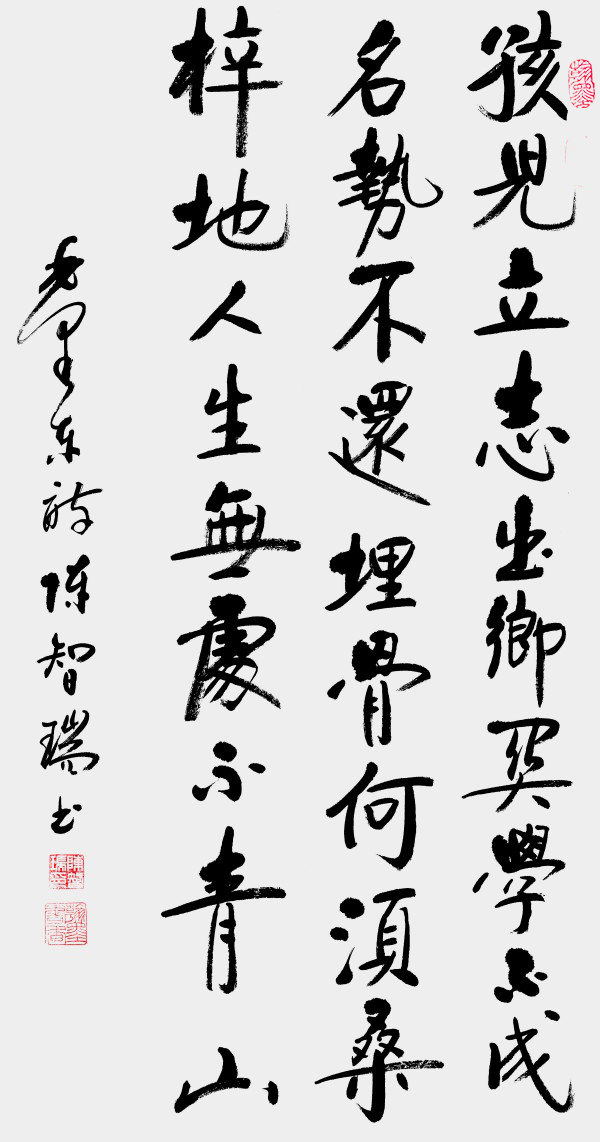 孩兒立志出鄉関學不成
名勢不還埋骨何須桑
梓地人生無處不青山
毛澤东詩陳智瑞书